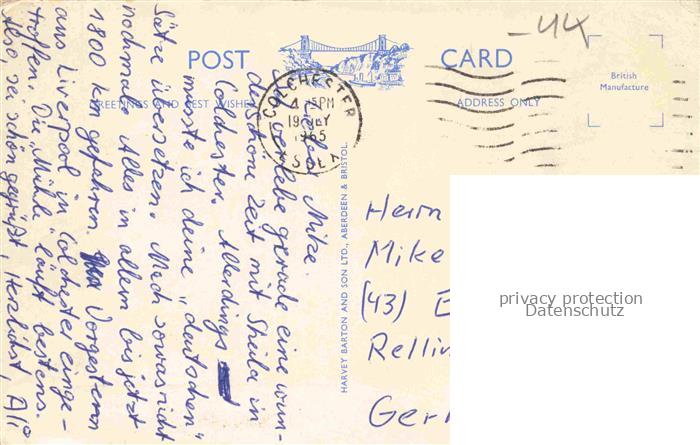 -44
POST CARD
GREETINGS AND BEST WISHES
ADDRESS ONLY
British
Manufacture
COLCHESTER
4-15PM
19 LY
1965
ESSEX
HARVEY BARTON AND SON LTD., ABERDEEN & BRISTOL.
Mike.
verlebe gerade eine wun-
derschöne Zeit mit Sheila in
Colchester. Allerdings
müsste ich deine „deutschen"
Sätze übersetzen. Mach sowas nicht
nochmal. Alles in allem bis jetzt
1800 km gefahren. Vorgestern
aus Liverpool in Colchester einge-
troffen. Die „Mühle" läuft bestens.
Also, sei schön gegrüßt, Herzlichst,
Herrn
Mike
(43) E
Rellin
Ger
privacy protection
Datenschutz